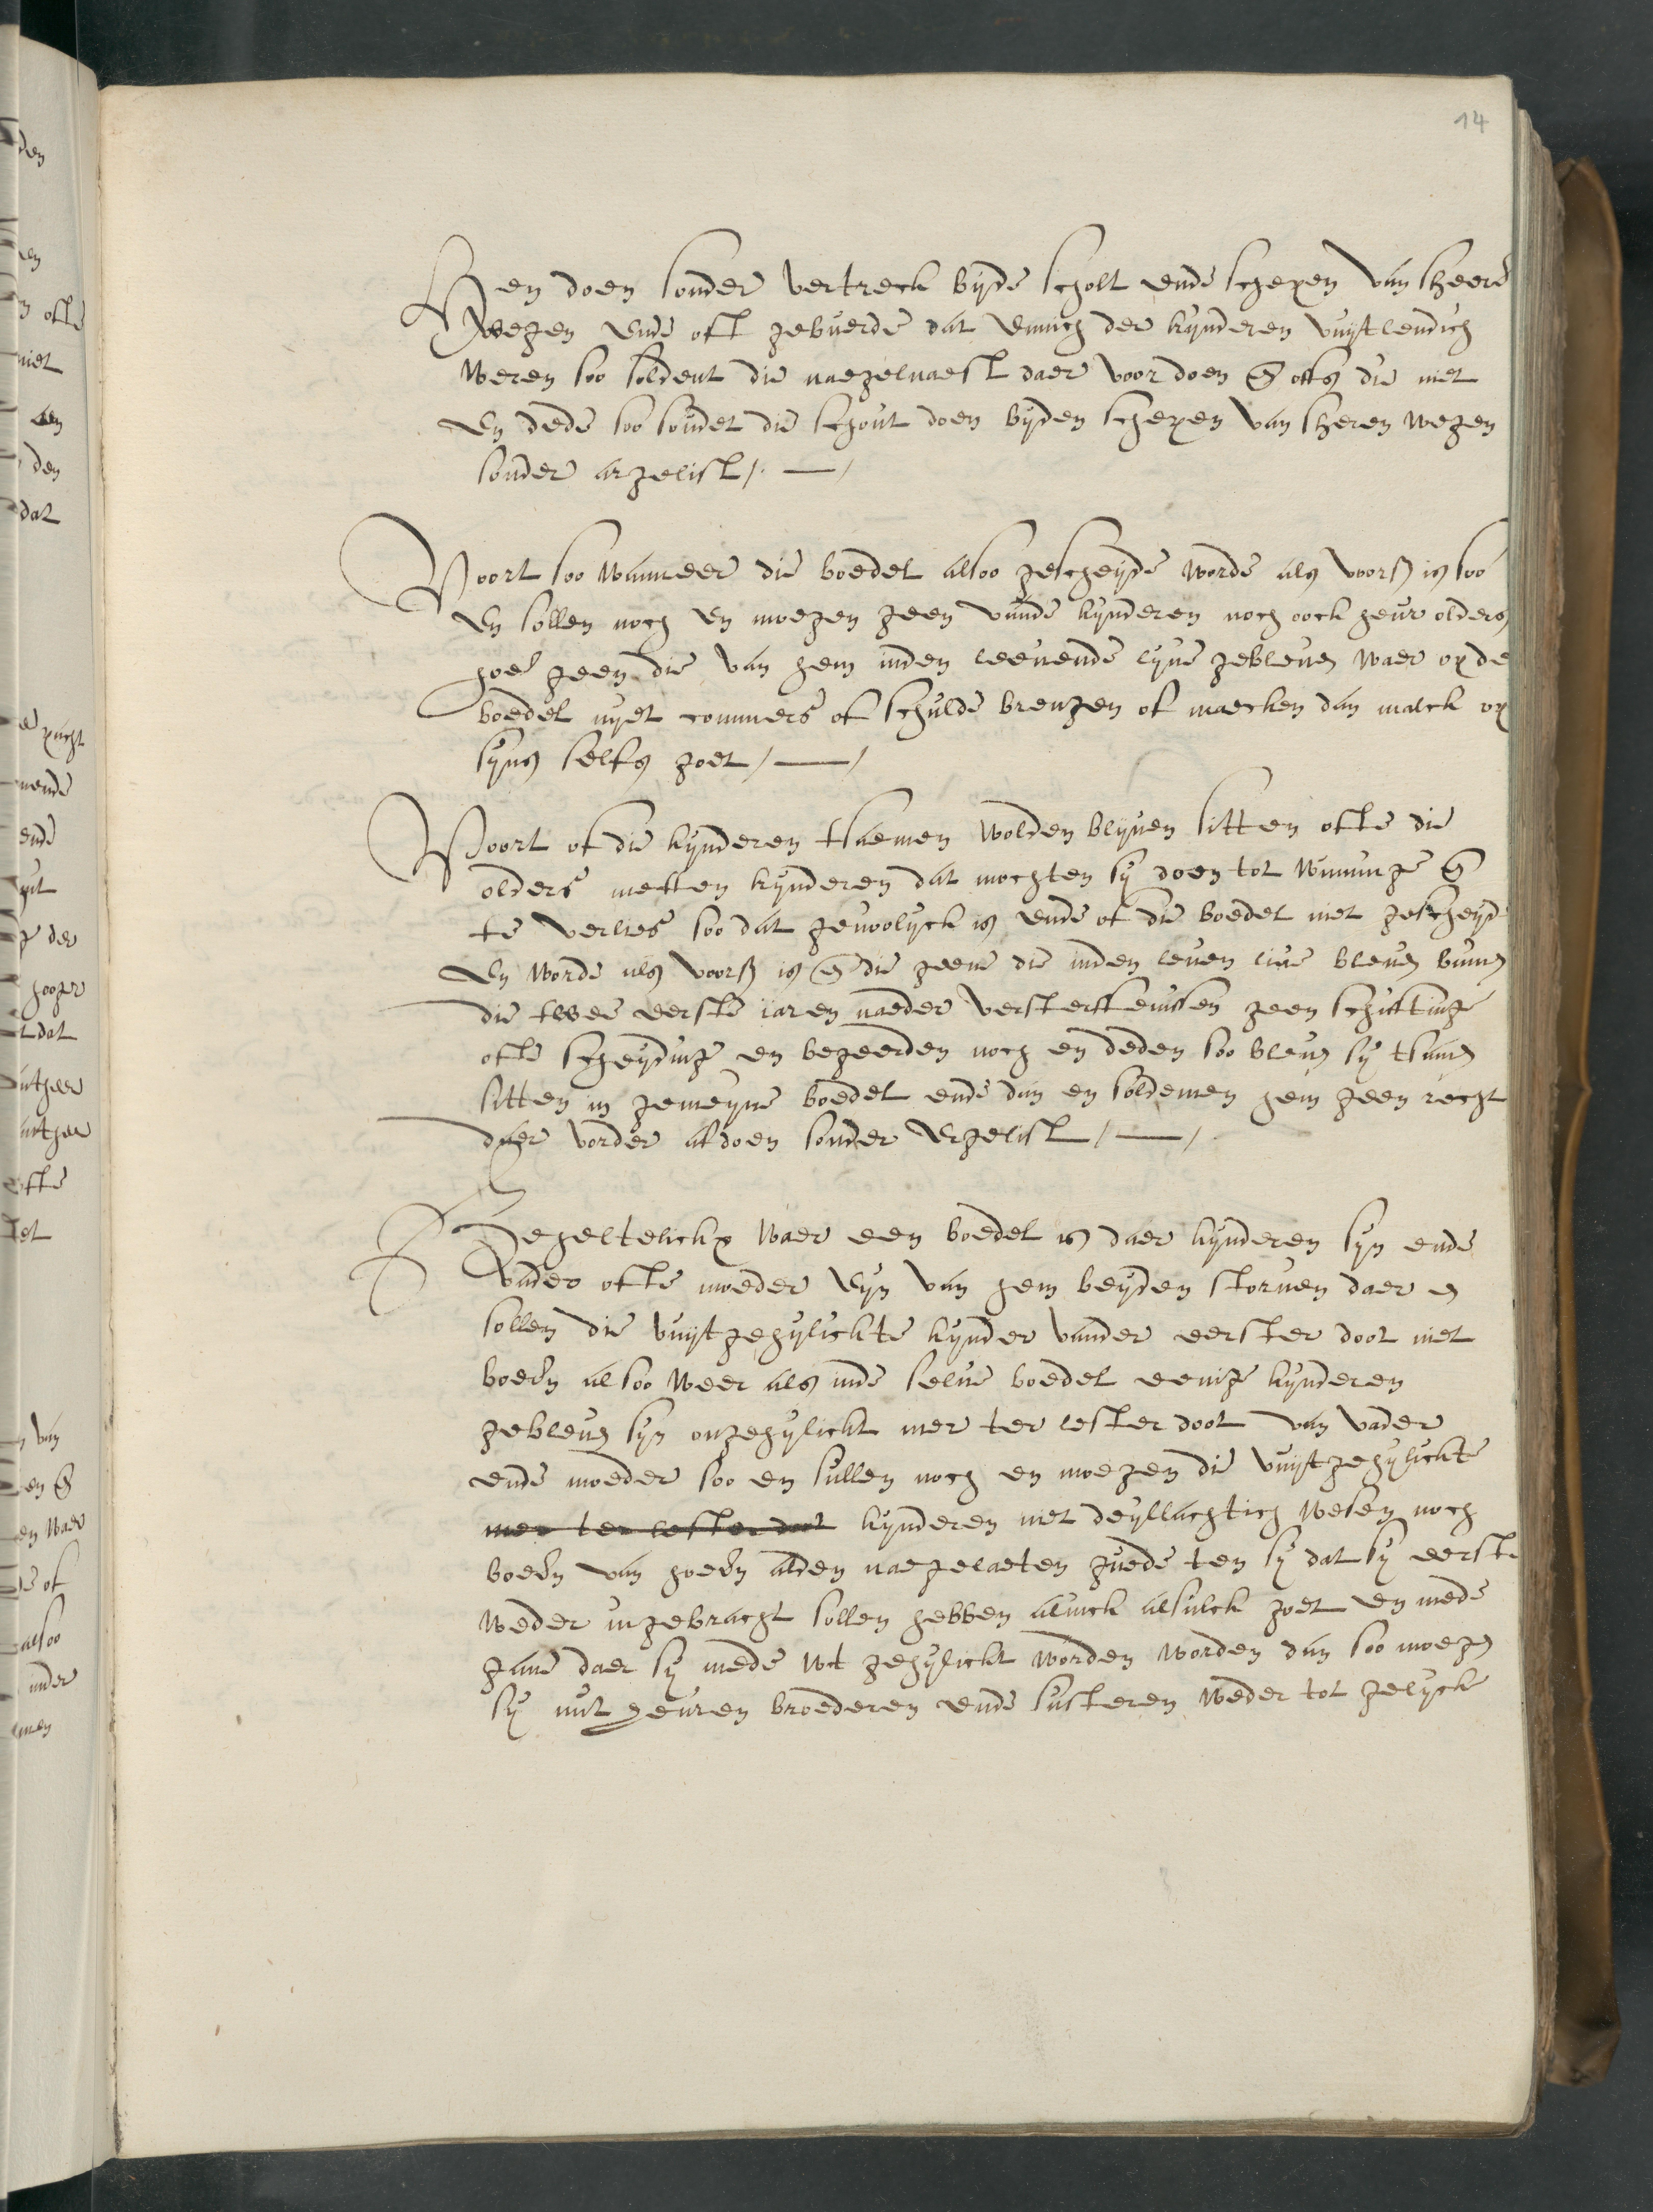 14
en doen sonder vertreck byde scholt ende schepen van sheere
wegen ende oft gebuerde dat eenich der kynderen vuytlendich
weren soo soldent die naegelnaest daer voor doen en offs die niet
en dede soo soudet die schout doen byden schepen van sheren wegen
sonder argelist
Voort soo wanneer die boedel alsoo gescheyde worde als voors is soo
en sollen noch en moegen geen vande kynderen noch oock heur olders
geen die van hem inden leeuende lyue gebleuen waer op de
boedel nyet commers of schulde brengen of maecken dan malck op
syns selfs goet
Voort of die kynderen tsaemen wolden blyuen sitten ofte die
olders metten kynderen dat mochten sy doen tot winninge en
te verlies soo dat gewoolyck is ende of die boedel niet gescheyd
en worde als voors is en die geene die inden leuen liue bleuen binnen
die twee eerste iaren naeder versterffenissen geen schiftinge
ofte scheydinge en begeerden noch en deden soo bleuen sy tsamen
sitten in gemeyne boedel ende dan en soldemen hem geen recht
daer vorder af doen sonder ergelist
waer een boedel is daer kynderen syn ende
vader ofte moeder eyn van hem beyden storuen daer en
sollen die vuytgehylickte kynder vander eerster doot niet
boeren alsoo weer als inde selue boedel eenige kynderen
gebleuen syn ongehylickt mer ter lester doot van vader
ende moeder soo en sullen noch en moegen die vuytgehylickte
mer ter lester doot kynderen niet deyllachtich wesen noch
boeren van hoeren alden naegelaeten guede ten sy dat sy eerst
weder ingebracht sollen hebben alinck alsulck goet en mede
gaue daer sy mede wt gehylickt worden worden dan soo moegen
sy mit heuren broederen ende susteren weder tot gelyck